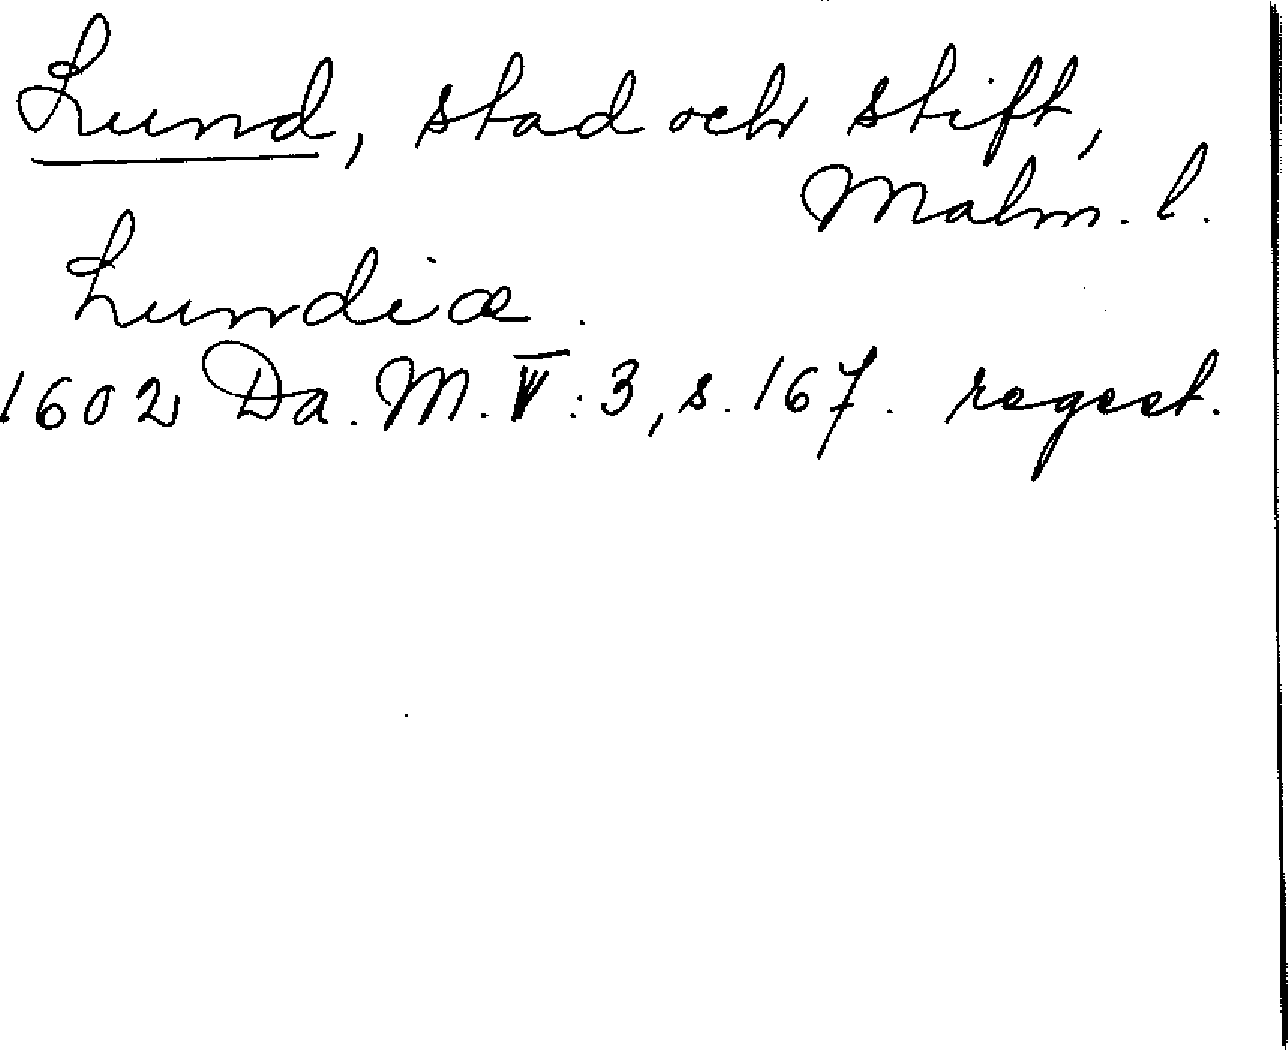 Lund, stad och stift,
Malm. l.
Lundiæ.
1602 Da. M. V: 3, s. 167. regest.